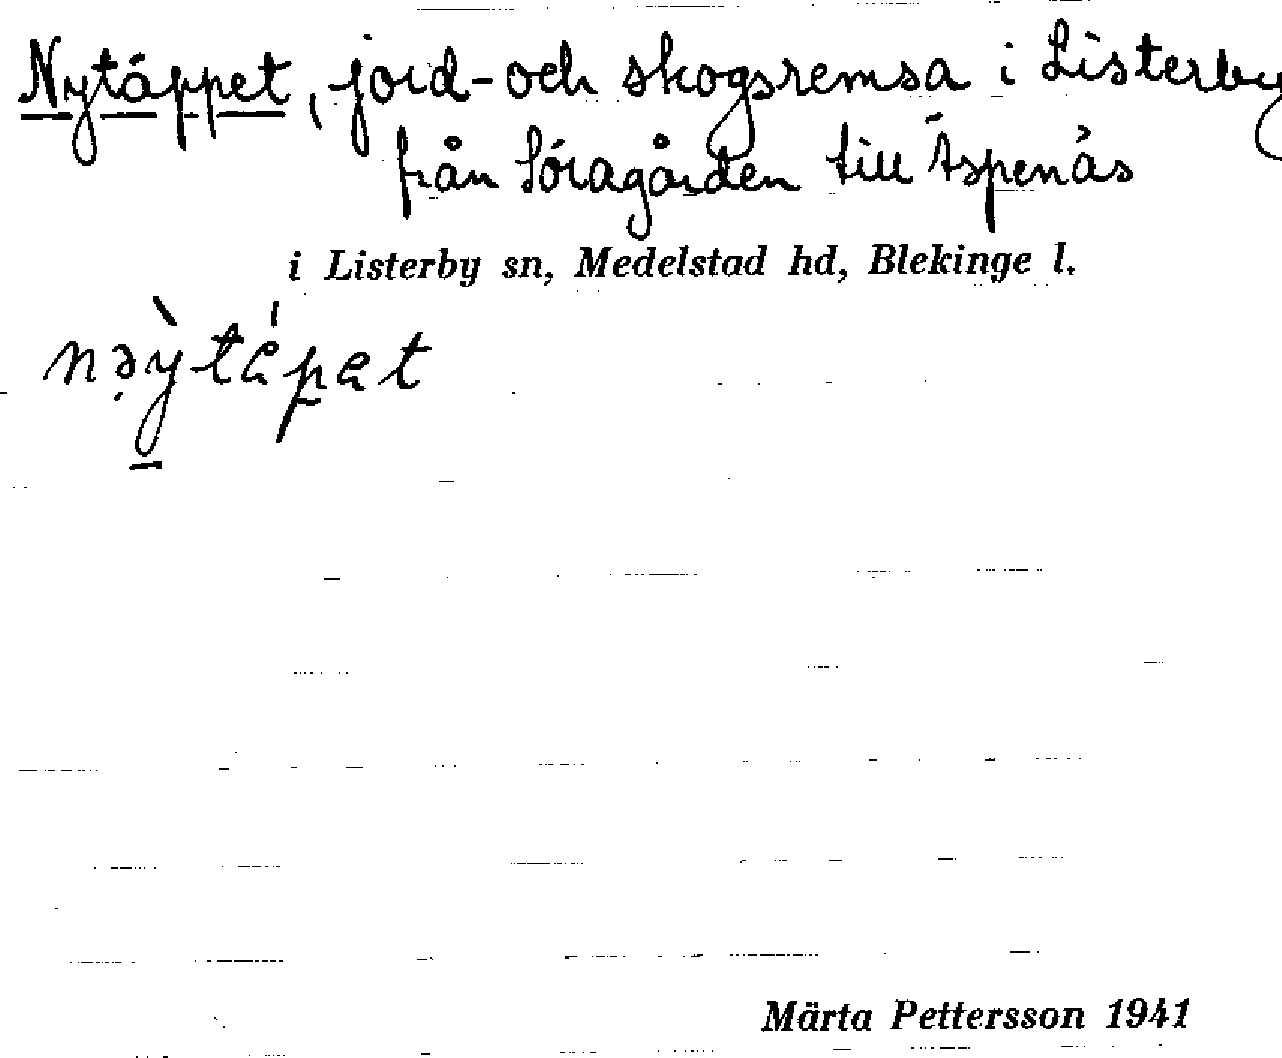 Nytäppet, jord- och skogsremsa i Listerby
från Söragården till Äspenäs
i Listerby sn, Medelstad hd, Blekinge l.
nə̣ỳtápat
Märta Pettersson 1941